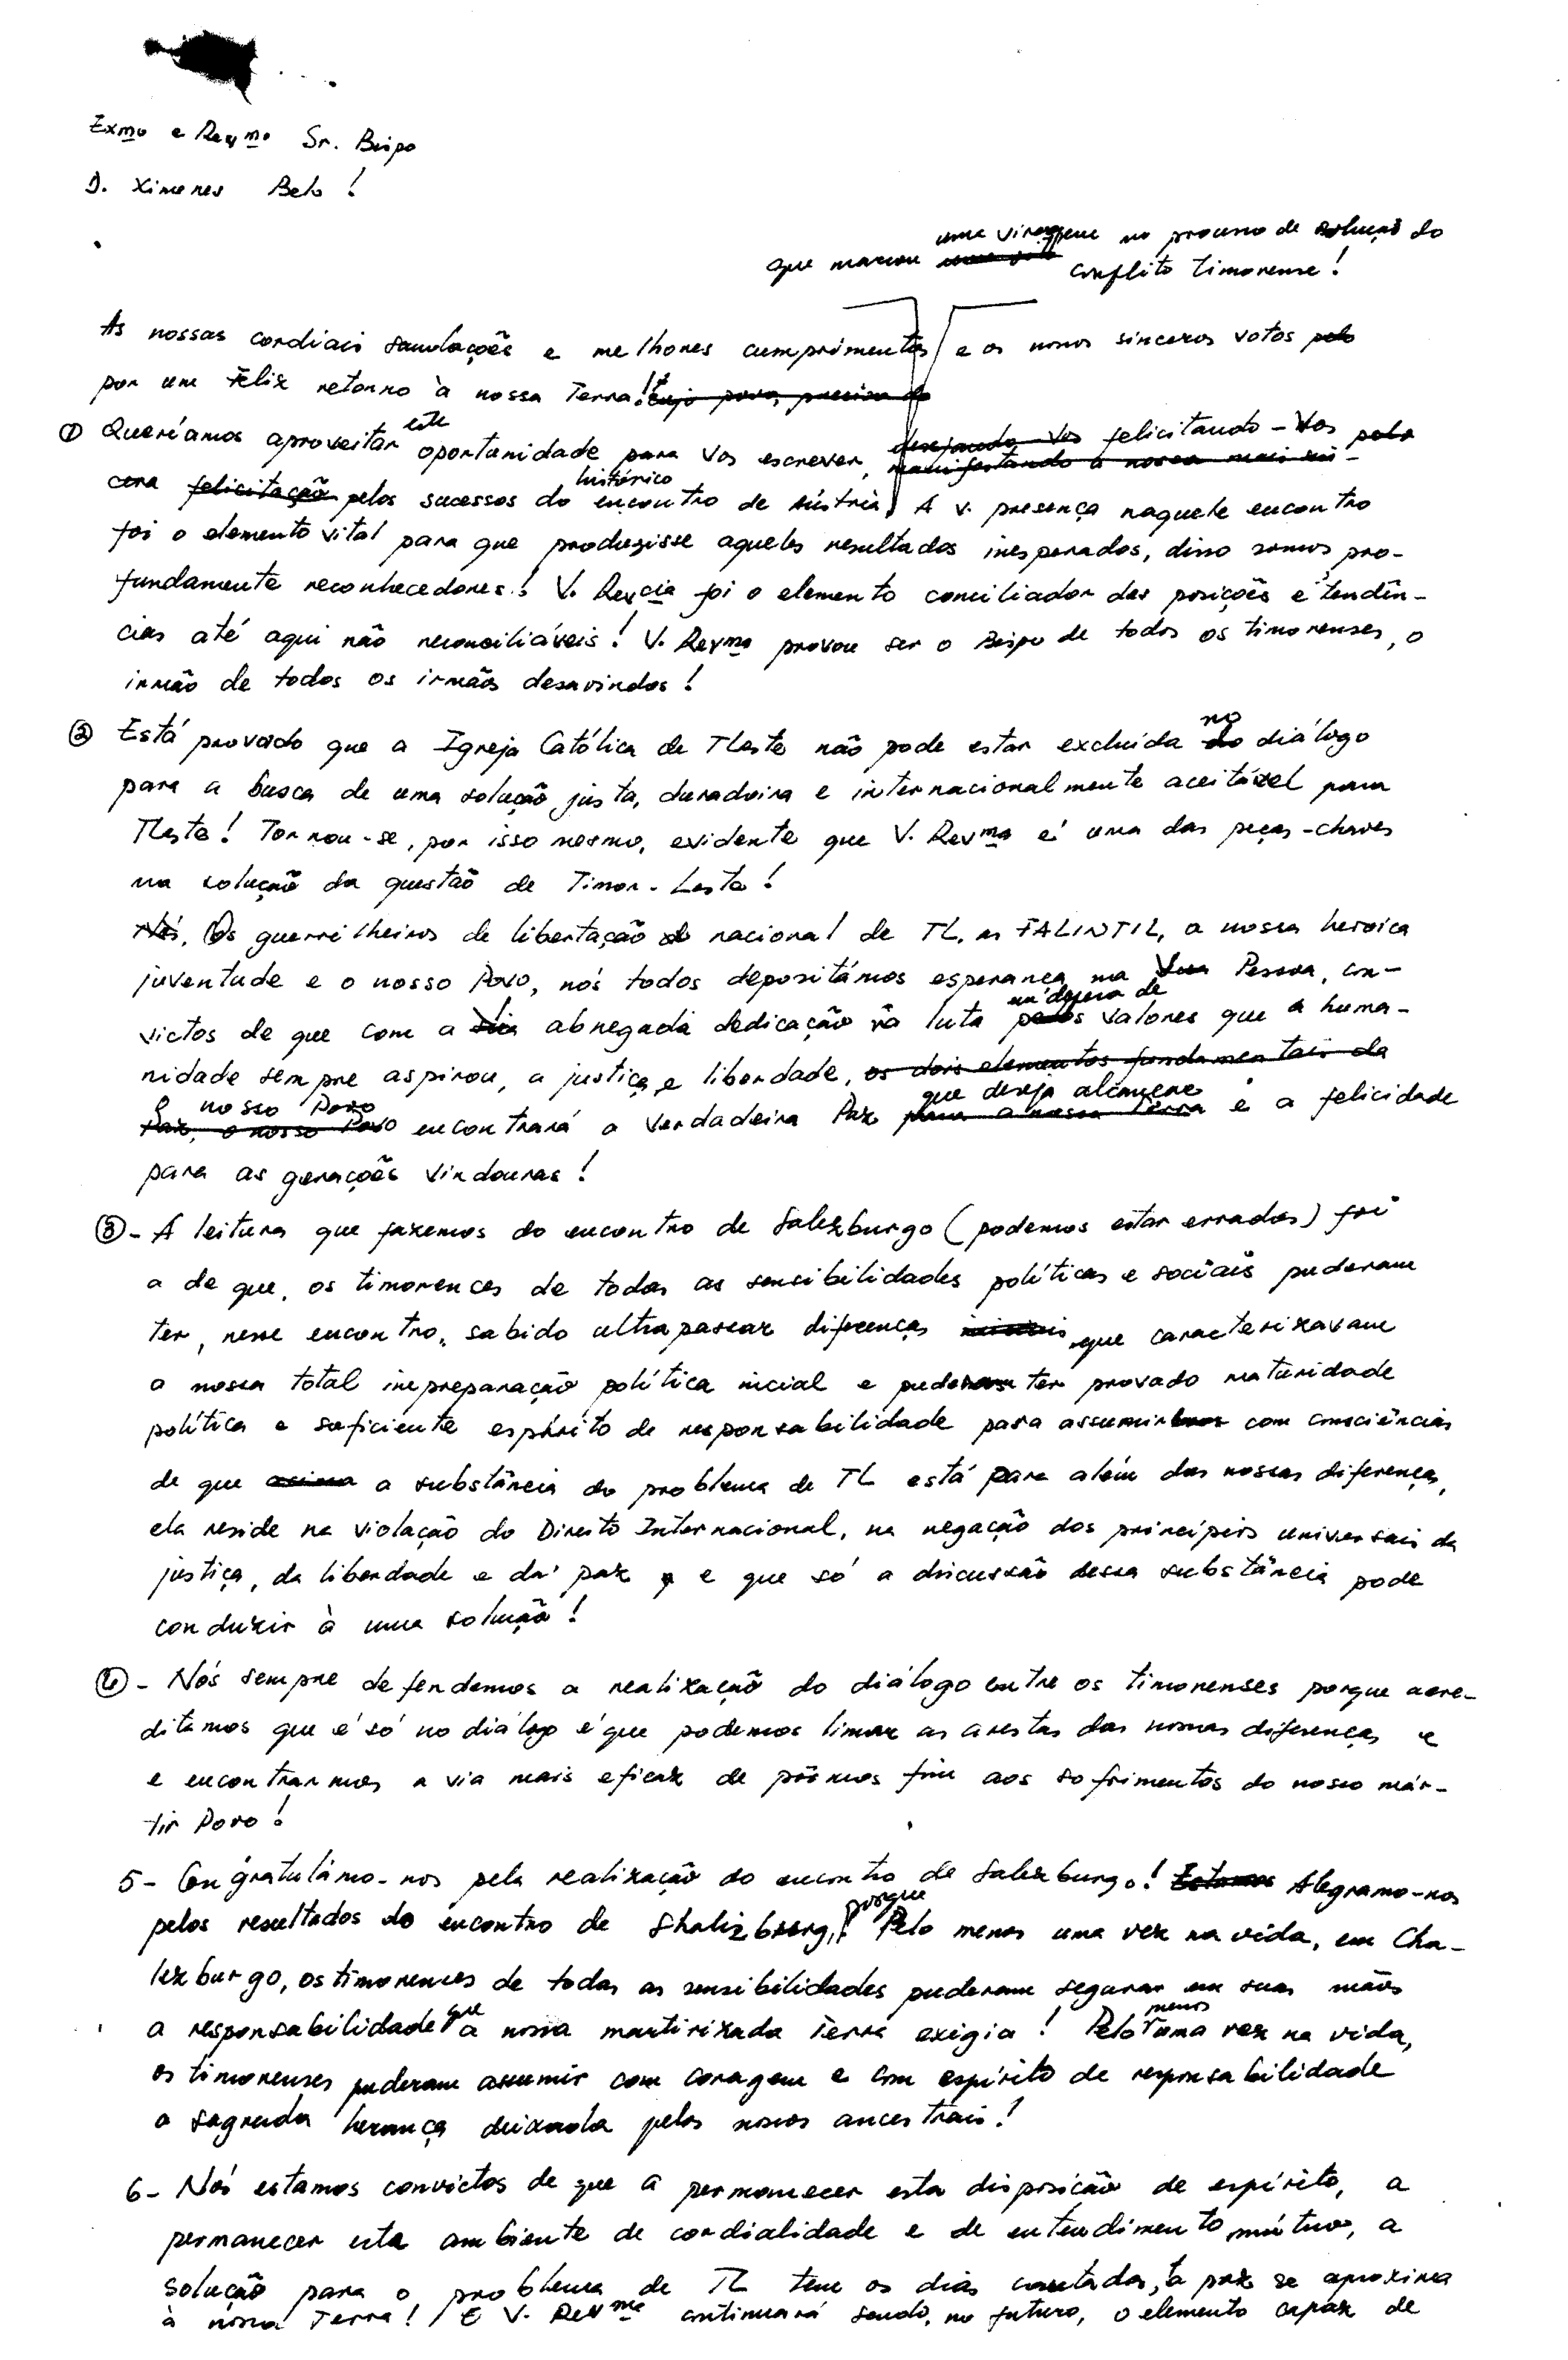 Exmo e Revmo Sr. Bispo
D. Ximenes Belo!
uma viragem no processo de solução do
que marcou conflito timorense!
As nossas cordiais saudações e melhores cumprimentos e os nossos sinceros votos pelo
por um Feliz retorno à nossa Terra! cujo povo, precisa do
① Queríamos aproveitar esta oportunidade para Vos escrever, desejando-Vos felicitando-Vos pelo
manifestando a nossa mais sin-
cera felicitação pelos sucessos do histórico encontro de Áustria, A V. presença naquele encontro
foi o elemento vital para que produzisse aqueles resultados inesperados, disso somos pro-
fundamente reconhecedores! V. Revcia foi o elemento conciliador das posições e tendên-
cias até aqui não reconciliáveis! V. Revma provou ser o Bispo de todos os timorenses, o
irmão de todos os irmãos desavindos!
② Está provado que a Igreja Católica de TLeste não pode estar excluída do no diálogo
para a busca de uma solução justa, duradoira e internacionalmente aceitável para
TLeste! Tornou-se, por isso mesmo, evidente que V. Revma é uma das peças-chaves
na solução da questão de Timor-Leste!
Nós, Os guerrilheiros de libertação nacional de TL, as FALINTIL, a nossa heroica
juventude e o nosso Povo, nós todos depositámos esperança na Vossa Pessoa, con-
victos de que com a Sua abnegada dedicação à luta pelos em defesa de valores que a huma-
nidade sempre aspirou, a justiça e liberdade, os dois elementos fundamentais da
Paz, o nosso Povo o nosso Povo encontrará a verdadeira Paz para a nossa Terra que deseja alcançar e a felicidade
para as gerações vindouras!
③ - A leitura que fazemos do encontro de Salezburgo (podemos estar errados) foi
a de que, os timorences de todas as sensibilidades políticas e sociais puderam
ter, nesse encontro, sabido ultrapassar diferenças iniciais que caracterizavam
a nossa total inepreparação política inicial e puderam ter provado maturidade
política e suficiente espírito de responsabilidade para assumir com consciência
de que acima a substância do problema de TL está para além das nossas diferenças,
ela reside na violação do Direito Internacional, na negação dos princípios universais da
justiça, da liberdade e da paz e que só a discussão dessa substância pode
conduzir à uma solução!
④ - Nós sempre defendemos a realização do diálogo entre os timorenses porque acre-
ditamos que é só no diálogo é que podemos limar as arestas das nossas diferenças e
e encontrarmos a via mais eficaz de pôrmos fim aos sofrimentos do nosso már-
tir Povo!
5 - Congratulámo-nos pela realização do encontro de Salezburgo! Estamos Alegramo-nos
pelos resultados do encontro de Shalizburg, porque Pelo menos uma vez na vida, em Cha-
lezburgo, os timorences de todas as sensibilidades puderam segurar em suas mãos
a responsabilidade que a nossa martirizada Terra exigia! Pelo menos uma vez na vida,
os timorenses puderam assumir com coragem e com espírito de responsabilidade
a sagrada herança deixada pelos nossos ancestrais!
6 - Nós estamos convictos de que a permanecer esta disposição de espírito, a
permanecer este ambiente de cordialidade e de entendimento mútuo, a
solução para o problema de TL tem os dias contados, a paz se aproxima
à nossa Terra! E V. Revma continuará sendo, no futuro, o elemento capaz de